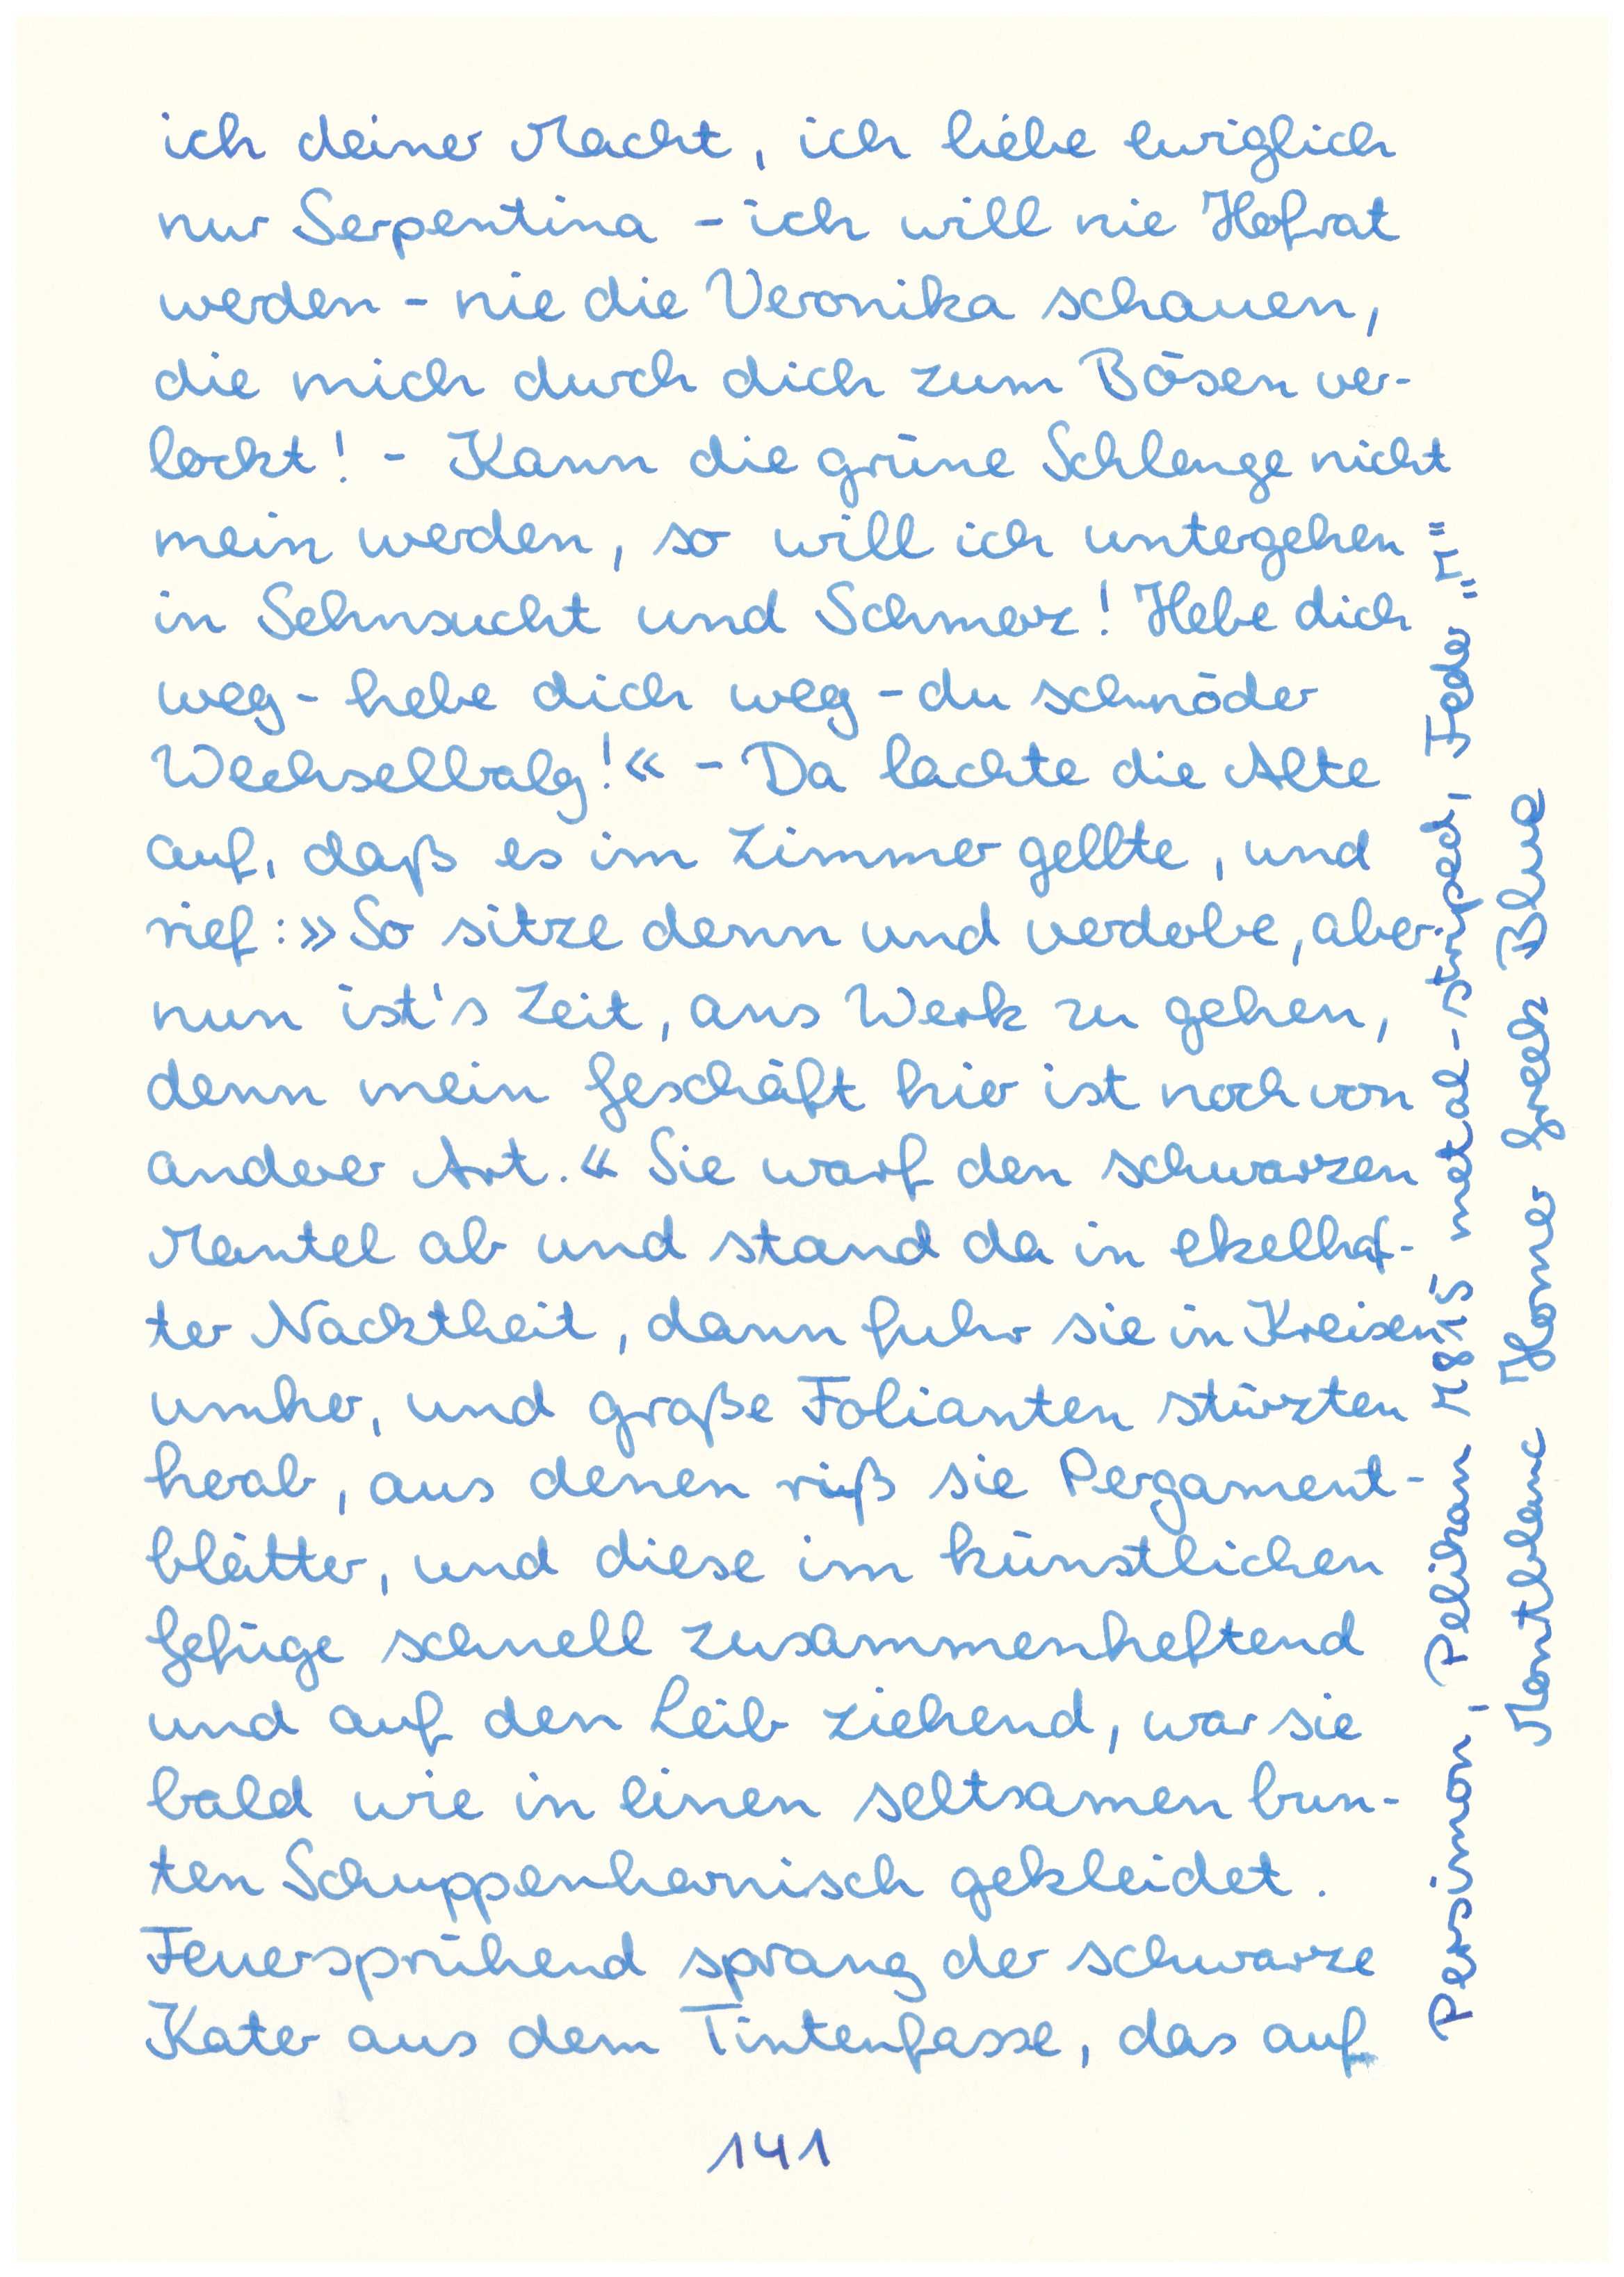 ich deiner Macht, ich liebe ewiglich
nur Serpentina - ich will nie Hofrat
werden - nie die Veronika schauen,
die mich durch dich zum Bösen ver-
lockt! - Kann die grüne Schlange nicht
mein werden, so will ich untergehen
in Sehnsucht und Schmerz! Hebe dich
weg - hebe dich weg - du schnöder
Wechselbalg!« - Da lachte die Alte
auf, daß es im Zimmer gellte, und
rief: »So sitze denn und verderbe, aber
nun ist's Zeit, ans Werk zu gehen,
denn mein Geschäft hier ist noch von
anderer Art.« Sie warf den schwarzen
Mantel ab und stand da in ekelhaf-
ter Nacktheit, dann fuhr sie in Kreisen
umher, und große Folianten stürzten
herab, aus denen riß sie Pergament-
blätter, und diese im künstlichen
Gefüge schnell zusammenheftend
und auf den Leib ziehend, war sie
bald wie in einen seltsamen bun-
ten Schuppenharnisch gekleidet.
Feuersprühend sprang der schwarze
Kater aus dem Tintenfasse, das auf
141
Persimmon, Pelikan M815 metal-striped, Feder "F"
Montblanc Homer Greek Blue